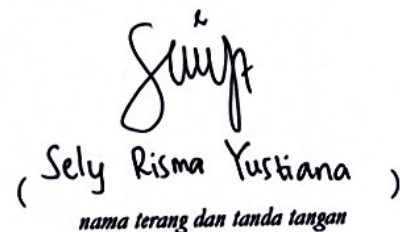 ( Sely Risma Yustiana )
nama terang dan tanda tangan